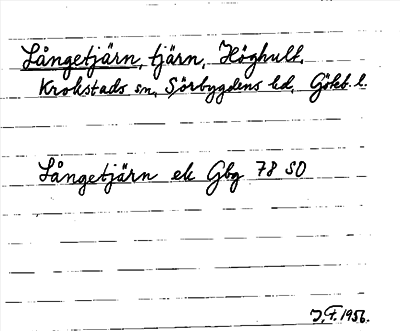 Långetjärn, tjärn, Höghult.
Krokstads sn, Sörbygdens hd, Göteb. l.
Långetjärn ek Gbg 78 SO
J.F. 1956.